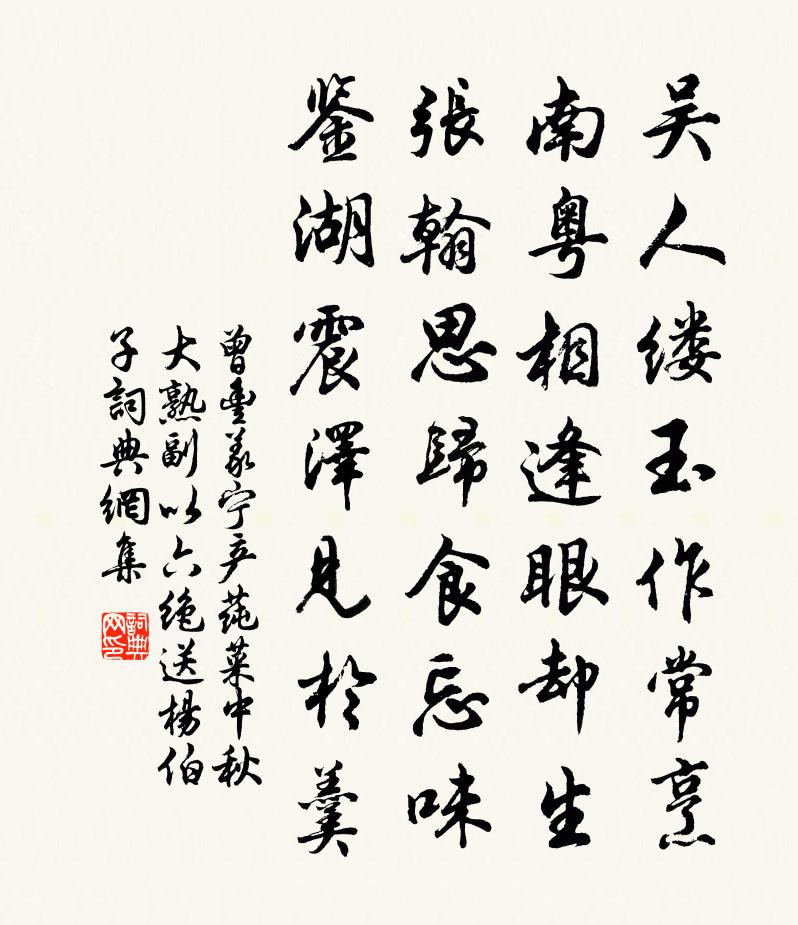 吴人缕玉作常烹
南粤相逢眼却生
張翰思歸食忘味
鉴湖震澤見於羹
曾豊義宁产莼菜中秋
大熟副以六绝送楊伯
子詞典網集
詞典网印